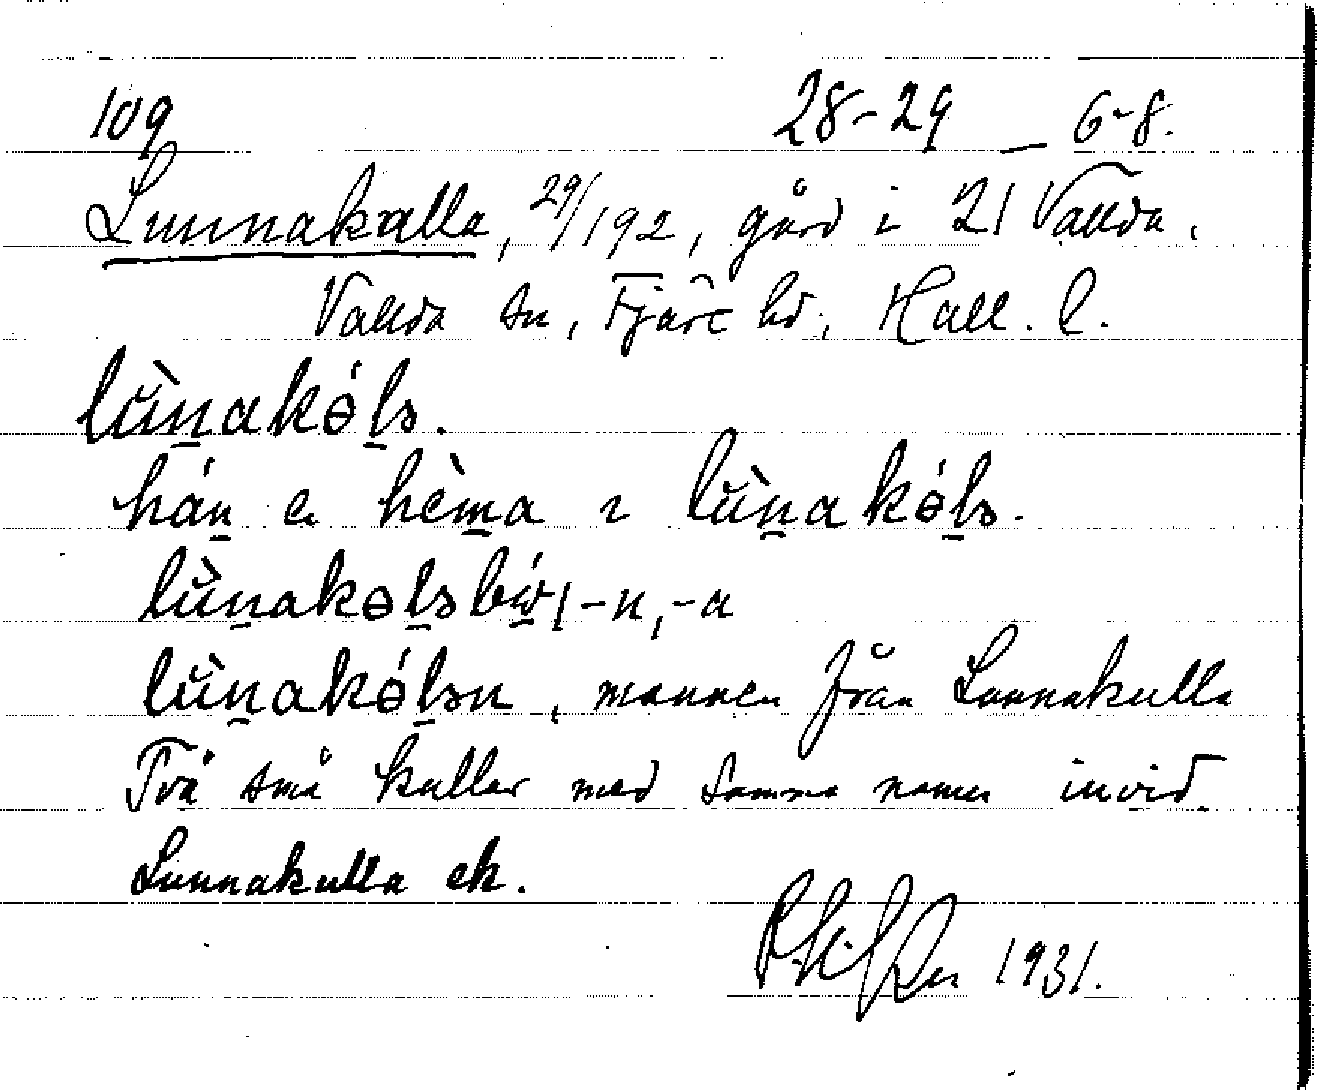 109 28-29 _ 6-8.
Lunnakulla, 29/192, gård i 21 Vallda,
Vallda sn, Fjäre hd, Hall. l.
lùn̠akɵ́l̠s.
hán̠ e hèm̠a ı lùn̠akɵ́l̠s.
lùn̠akɵl̠s -n, -a
lùn̠akɵ́l̠sn, mannen från Lunnakulla
Två små kullar med samma namn invid
Lunnakulla ek.
1931.